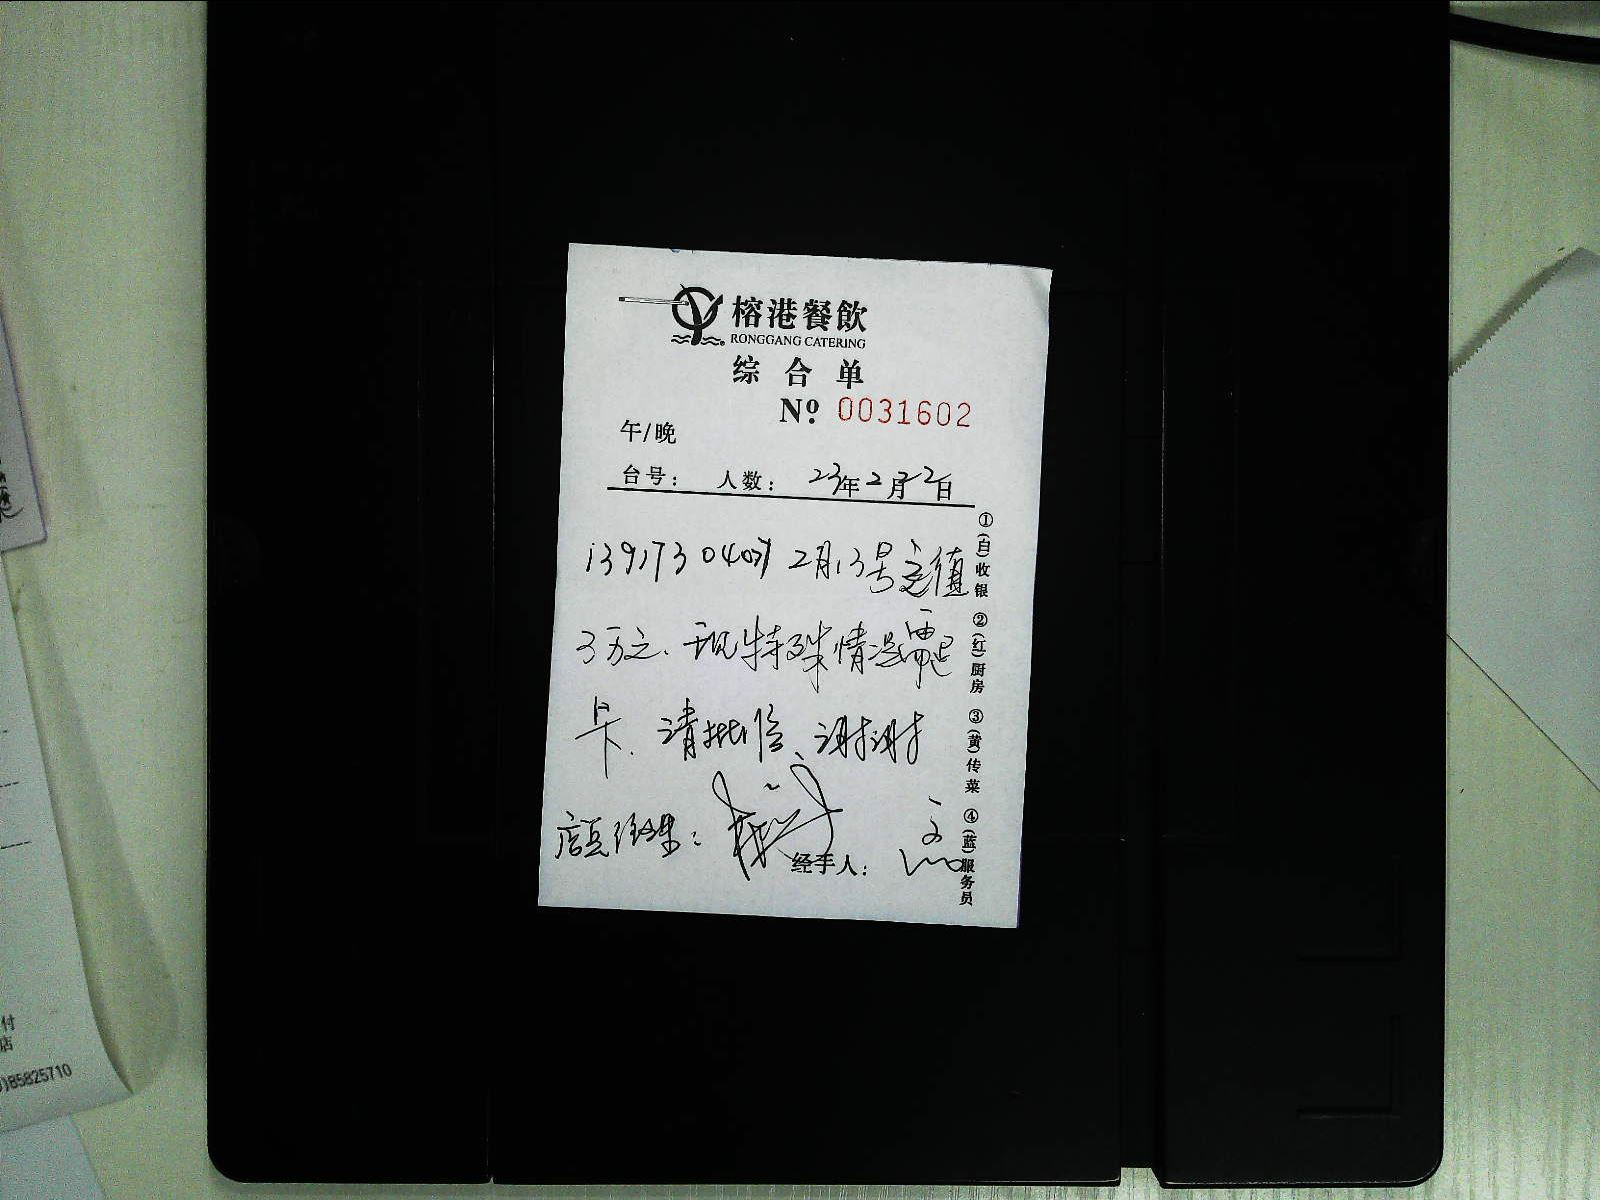 榕港餐飲
RONGGANG CATERING
综合单
Nº 0031602
午/晚
台号: 人数: 23年2月22日
2月13号充值
3万元、现特殊情况需退
卡、请批准、谢谢
店总经理:
经手人:
①(白)收银 ②(红)厨房 ③(黄)传菜 ④(蓝)服务员
付
店
)85825710